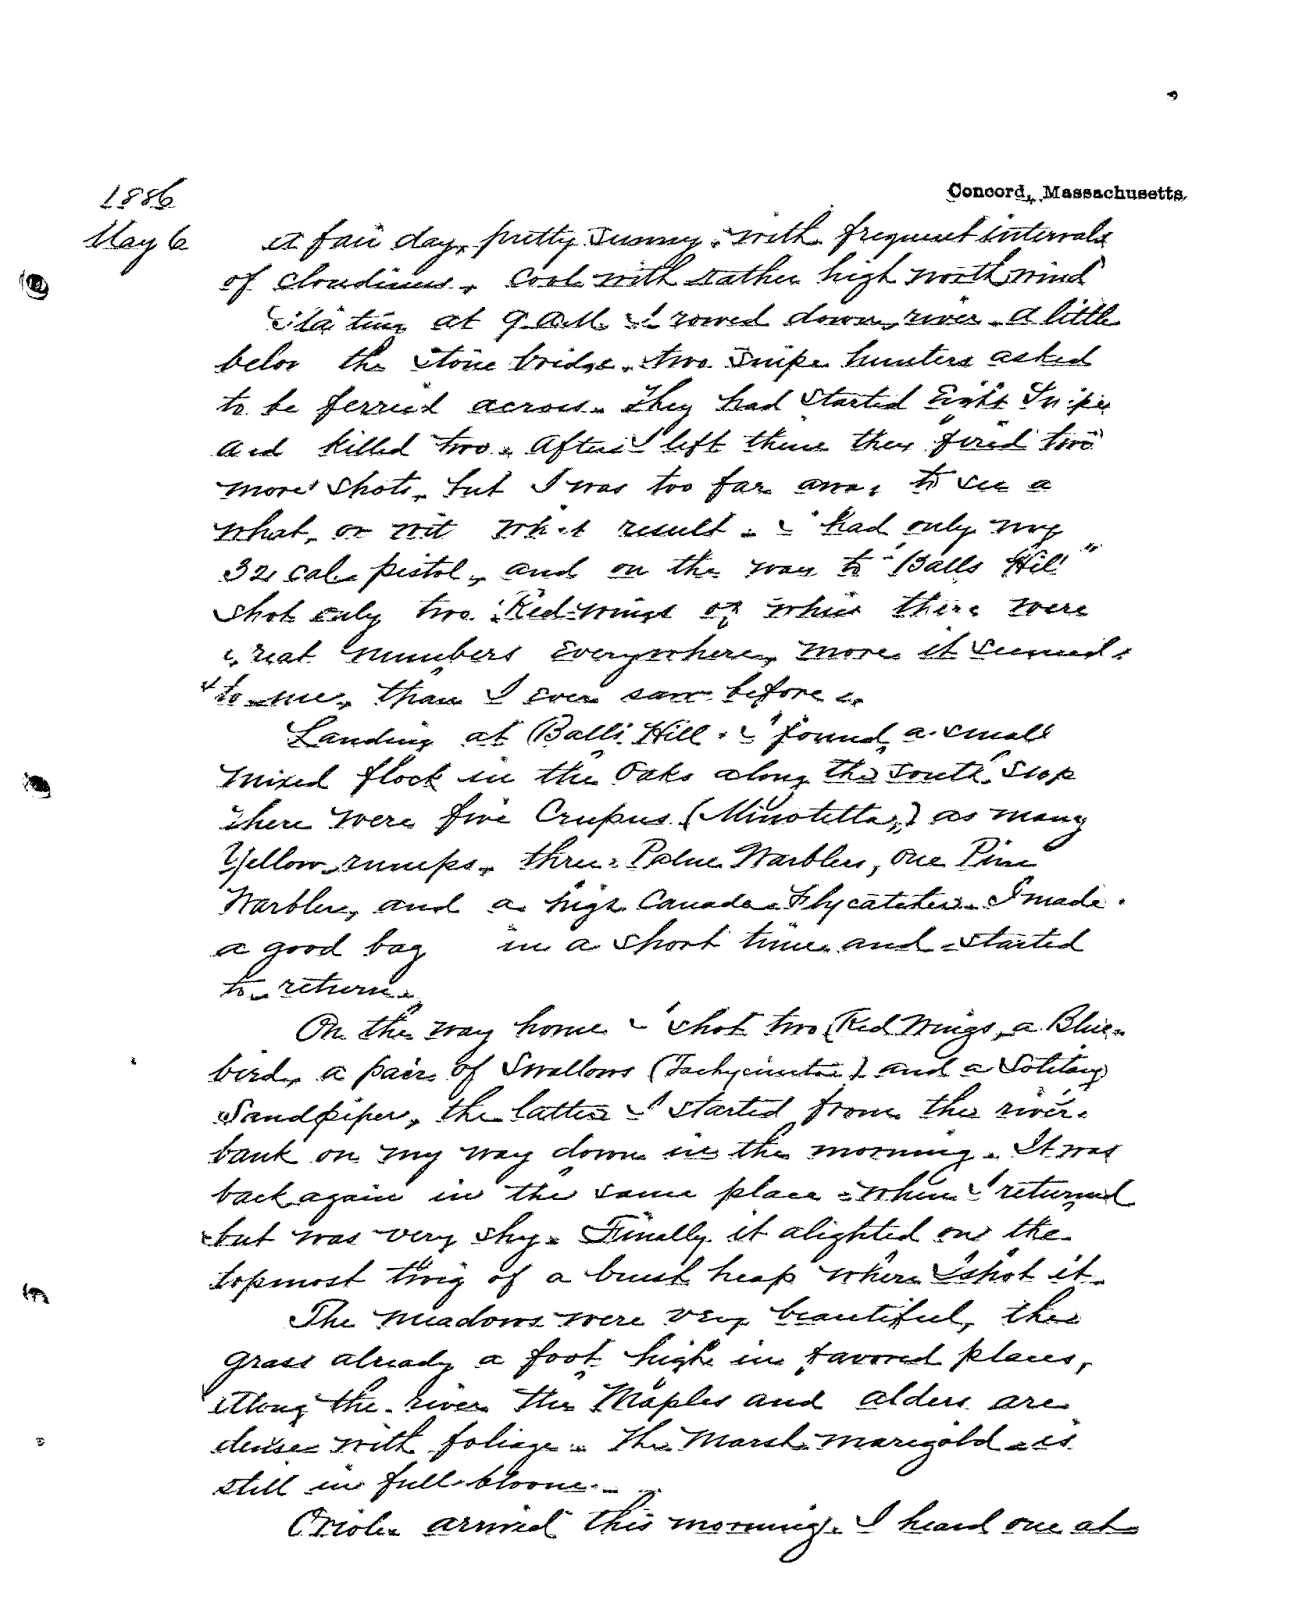 Concord, Massachusetts.
1886
May 6
A fair day, pretty sunny with frequent intervals
of cloudiness. Cool with rather high north wind
Starting at 9 A.M. I rowed down river. A little
below the stone bridge, two Snipe hunters asked
to be ferried across. They had started eight Snipe
and killed two. After I left them they fired two
more shots, but I was too far away to see a
what, or with what result. I had only my
32 cal. pistol, and on the way to "Balls Hill"
shot only two Red-wings of which there were
great numbers everywhere, more it seemed
to me, than I ever saw before.
Landing at Balls Hill I found a small
mixed flock in the Oaks along the south slope
There were five Creepers (Mniotilta,) as many
Yellow-rumps, three Palm Warblers, one Pine
Warbler, and a Canada Flycatcher. I made
a good bag in a short time and started
to return.
On the way home I shot two Red Wings, a Blue-
bird, a pair of Swallows (Tachycineta) and a Solitary
Sandpiper, the latter I started from the river-
bank on my way down in the morning. It was
back again in the same place when I returned
but was very shy. Finally it alighted on the
topmost twig of a brush heap where I shot it.
The meadows were very beautiful, the
grass already a foot high in favored places,
Along the river the Maples and alders are
dense with foliage. The Marsh marigold is
still in full bloom.
Oriole arrived this morning. I heard one at